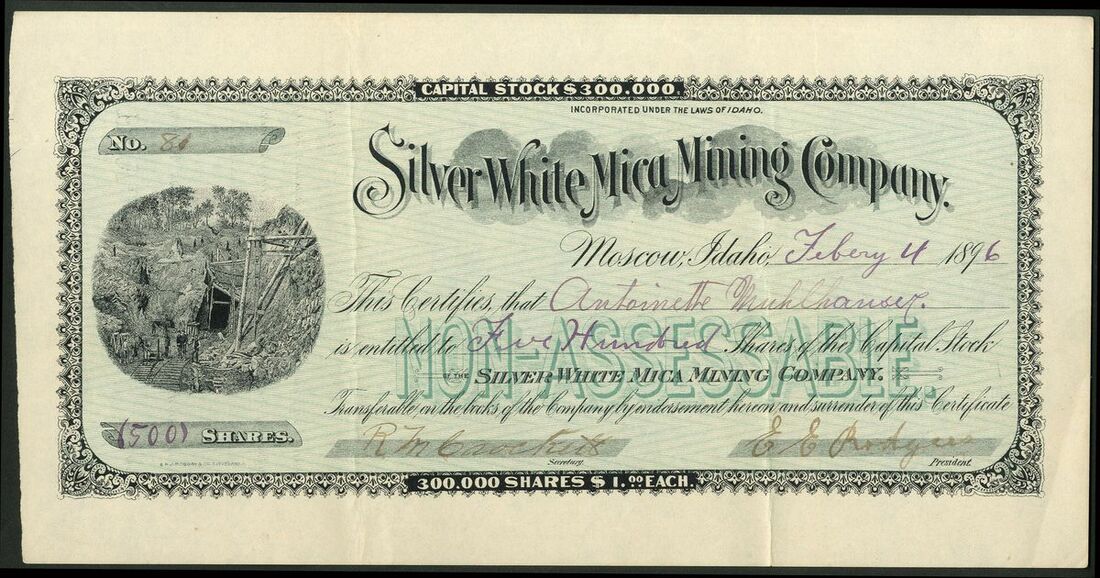 CAPITAL STOCK $300.000.
INCORPORATED UNDER THE LAWS OF IDAHO.
No. 86
Silver White Mica Mining Company.
Moscow, Idaho, Febery 4 1896
This Certifies, that Antoinette Muhlhauser.
is entitled to Five Hundred Shares of the Capital Stock
NON-ASSESSABLE.
OF THE SILVER WHITE MICA MINING COMPANY.
Transferable on the books of the Company by endorsement hereon and surrender of this Certificate
(500) SHARES.
R M Crockett
E E Rodgers
Secretary.
President.
300.000 SHARES $1.00 EACH.